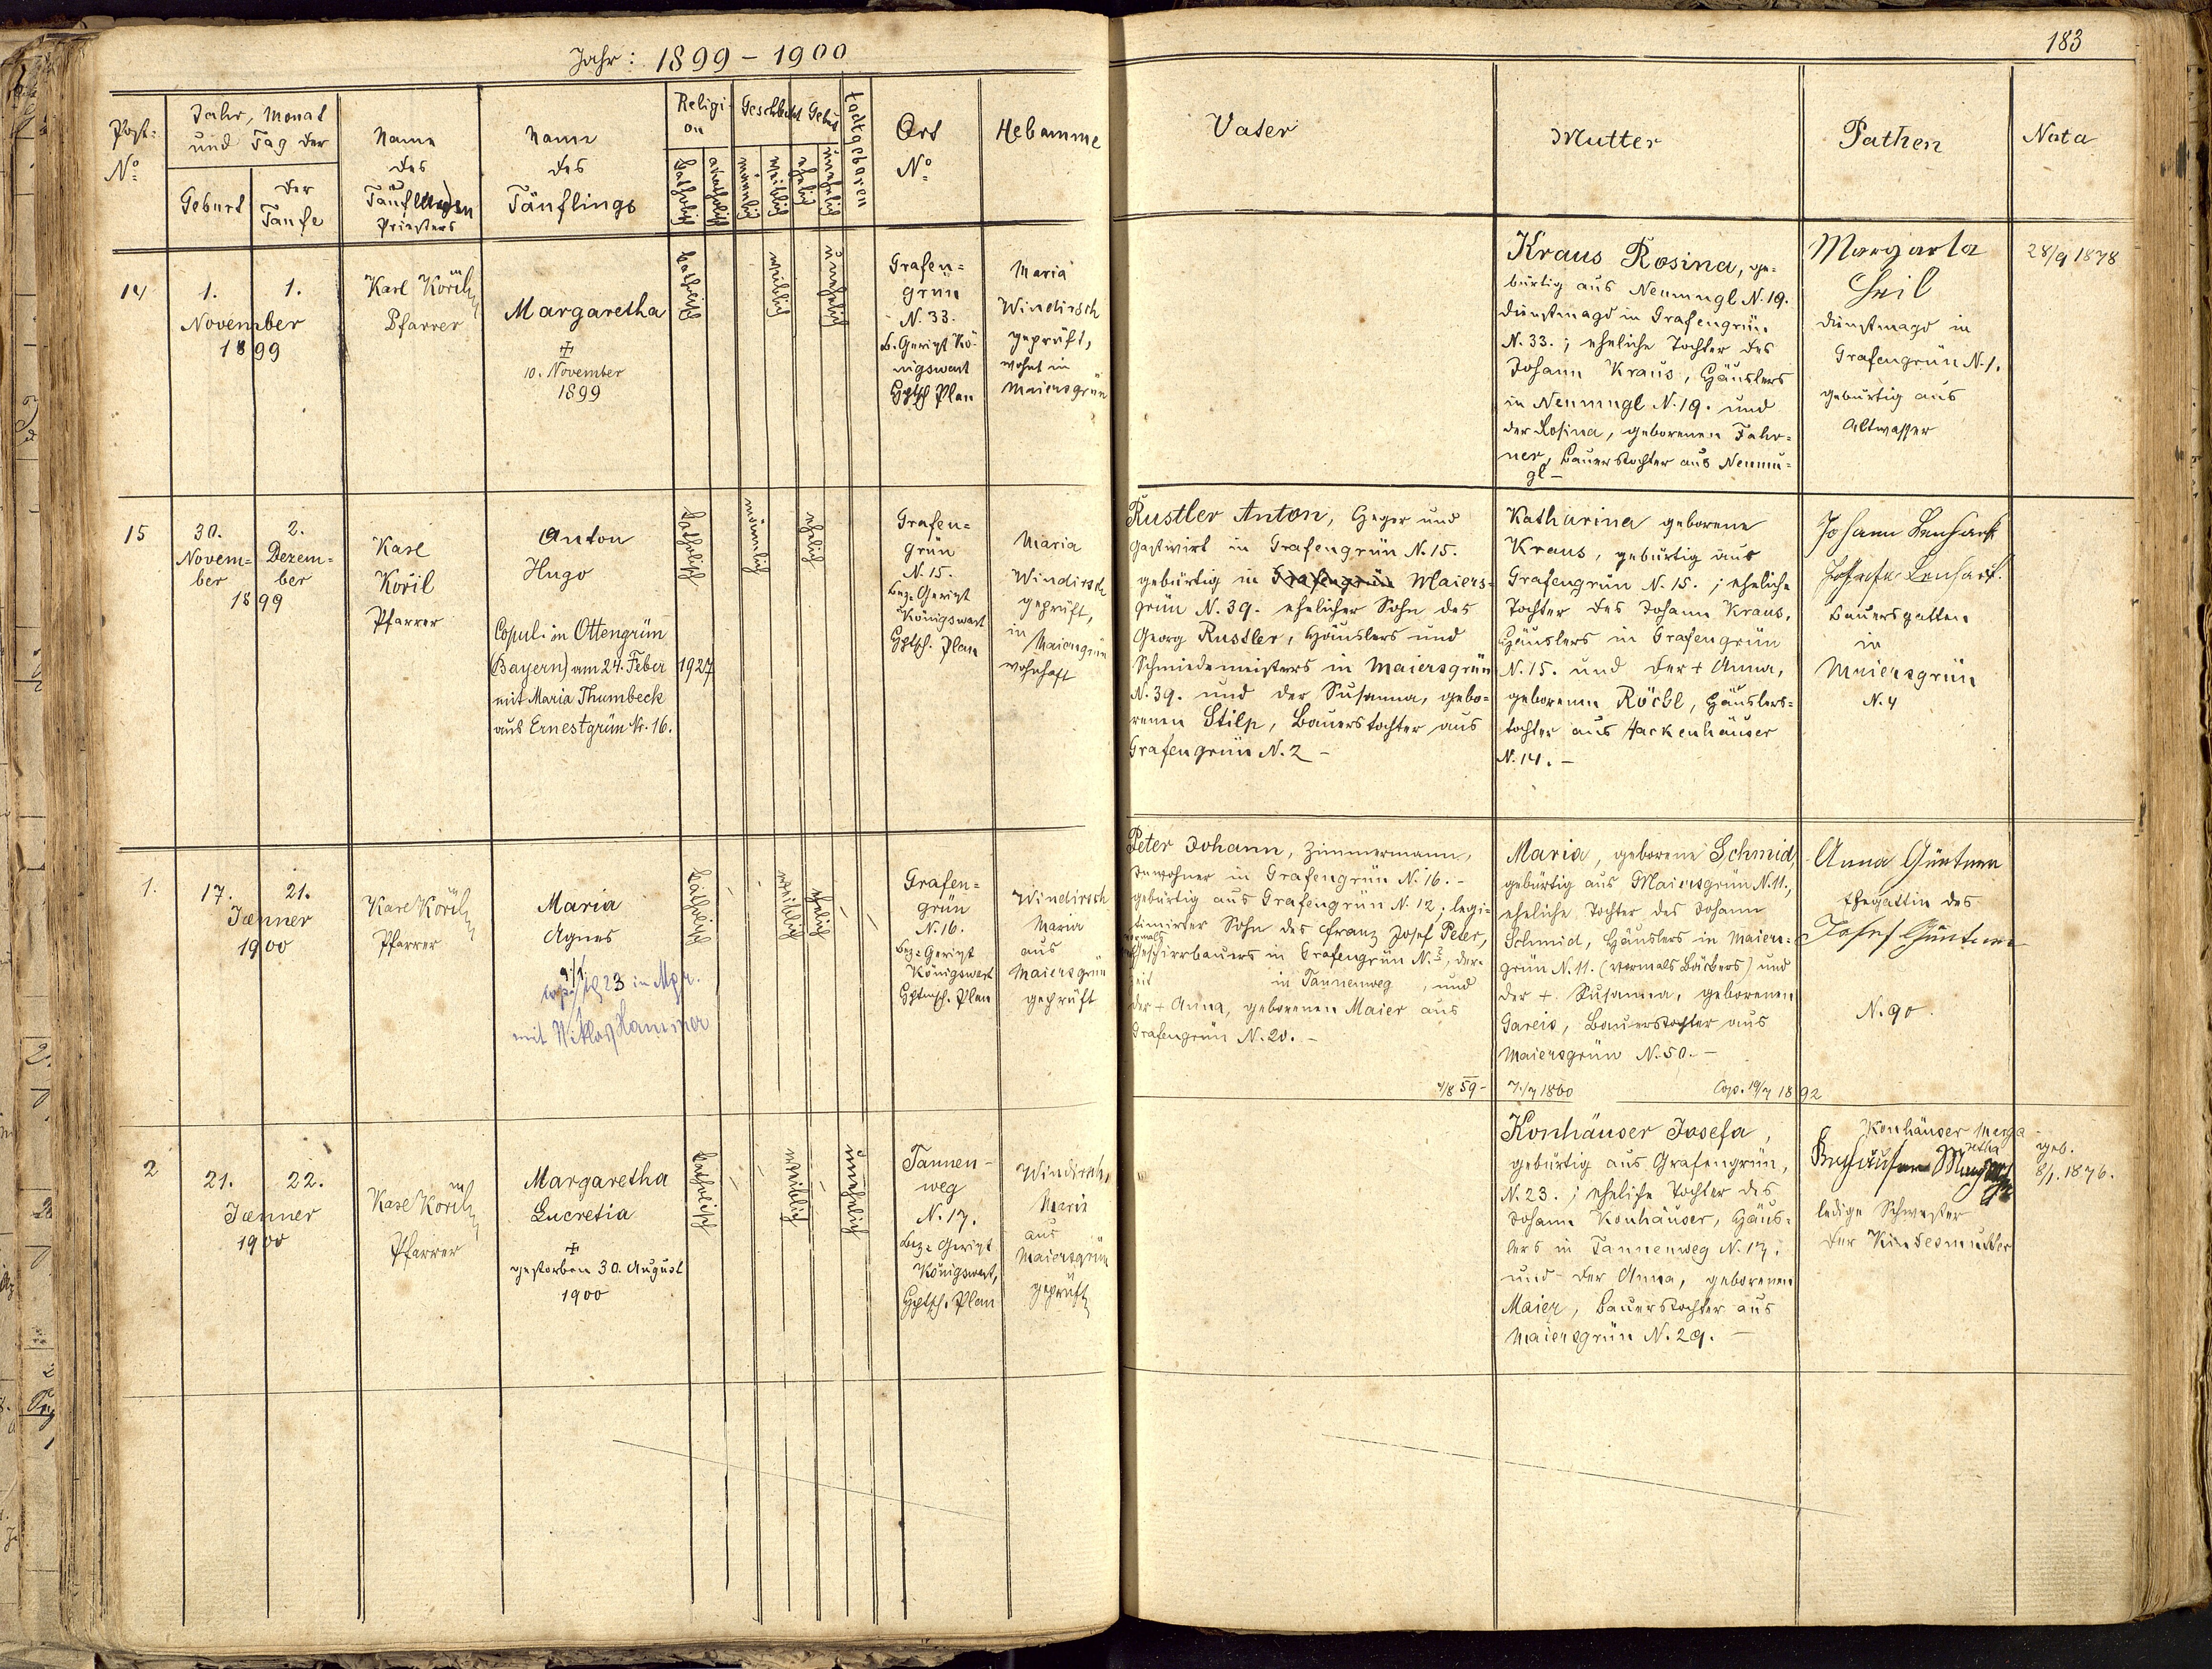 Jahr: 1899 - 1900
183
Post- No
Jahr, Monat und Tag der
Geburt
der Taufe
Name
des
Taufenden
Priesters
Name
des
Täuflings
Religion
katholisch
akatholisch
Geschlecht
männlich
weiblich
Geburt
ehelich
unehelich
todtgeboren
Ort
No
Hebamme
Vater
Mutter
Pathen
Nata
14
1.
1.
November
1899
Karl Kořil
Pfarrer
Margaretha
10. November
1899
katholisch
weiblich
unehelich
Grafen=
grün
N. 33.
b. Gericht Kö-
nigswart
Hptsch. Plan
Maria
Windirsch
geprüft,
wohnt in
Maiersgrün
Kraus Rosina, ge-
bürtig aus Neumugl N. 19.
Dienstmagd in Grafengrün
N. 33.; eheliche Tochter des
Johann Kraus, Häuslers
in Neumugl N. 19. und
der Rosina, geborenen Fahr-
ner, Bauerstochter aus Neumu-
gl -
Margareta
Heil
Dienstmagd in
Grafengrün N. 1.
gebürtig aus
Altwasser
28/9 1878
15
30.
Novem=
ber
2.
Dezem=
ber
1899
Karl
Kořil
Pfarrer
Anton
Hugo
Copul. in Ottengrün
(Bayern) am 24. Feber 1927
mit Maria Thumbeck
aus Ernestgrün Nr. 16.
katholisch
männlich
ehelich
Grafen=
grün
N. 15.
Bez. Gericht
Königswart
Hptsch. Plan
Maria
Windirsch
geprüft,
in Maiersgrün
wohnhaft
Rustler Anton, Heger und
Gastwirt in Grafengrün N. 15.
gebürtig in Grafengrün Maiers=
grün N. 39. ehelicher Sohn des
Georg Rustler, Häuslers und
Schmiedemeisters in Maiersgrün
N. 39. und der Susanna, gebo=
renen Stilp, Bauerstochter aus
Grafengrün N. 2 -
Katharina geborene
Kraus, gebürtig aus
Grafengrün N. 15.; eheliche
Tochter des Johann Kraus,
Häuslers in Grafengrün
N. 15. und der + Anna,
geborenen Röckl, Häuslers=
tochter aus Hackenhäuser
N. 14. -
Johann Lenhart
Josefa Lenhart.
Bauersgatten
in
Maiersgrün
N. 4
1.
17.
21.
Jænner
1900
Karl Kořil
Pfarrer
Maria
Agnes
1923 in Mgr.
mit Niklas Hammer
katholisch
weiblich
ehelich
Grafen=
grün
N. 16.
Bez. Gericht
Königswart
Hptmsch. Plan
Windirsch
Maria
aus
Maiersgrün
geprüft
Peter Johann, Zimmermann,
Inwohner in Grafengrün N. 16. -
gebürtig aus Grafengrün N. 12; legi=
timirter Sohn des Franz Josef Peter,
vormals Geschirrbauers in Grafengrün N. 2, der-
zeit in Tannenweg, und
der + Anna, geborenen Maier aus
Grafengrün N. 20. -
4/8 59 -
Maria, geborene Schmid
gebürtig aus Maiersgrün N. 11.,
eheliche Tochter des Johann
Schmid, Häuslers in Maiers=
grün N. 11. (vormals Bäckers) und
der + Susanna, geborenen
Gareis, Bauerstochter aus
Maiersgrün N. 50. -
7/7 1860
Cop. 19/7 1892
Anna Güntner
Ehegattin des
Josef Güntner
N. 90.
2
21.
22.
Jænner
1900
Karl Kořil
Pfarrer
Margaretha
Lucretia
gestorben 30. August
1900
katholisch
weiblich
unehelich
Tannen-
weg
N. 17.
Bez. Gericht
Königswart,
Hptsch. Plan
Windirsch,
Maria
aus
Maiersgrün
geprüft
Konhäuser Josefa,
gebürtig aus Grafengrün,
N. 23.; eheliche Tochter des
Johann Konhäuser, Häus=
lers in Tannenweg N. 17.
und der Anna, geborenen
Maier, Bauerstochter aus
Maiersgrün N. 29. -
Konhäuser Marga
retha
ledige Schwester
der Kindesmutter
geb.
8/1. 1876.